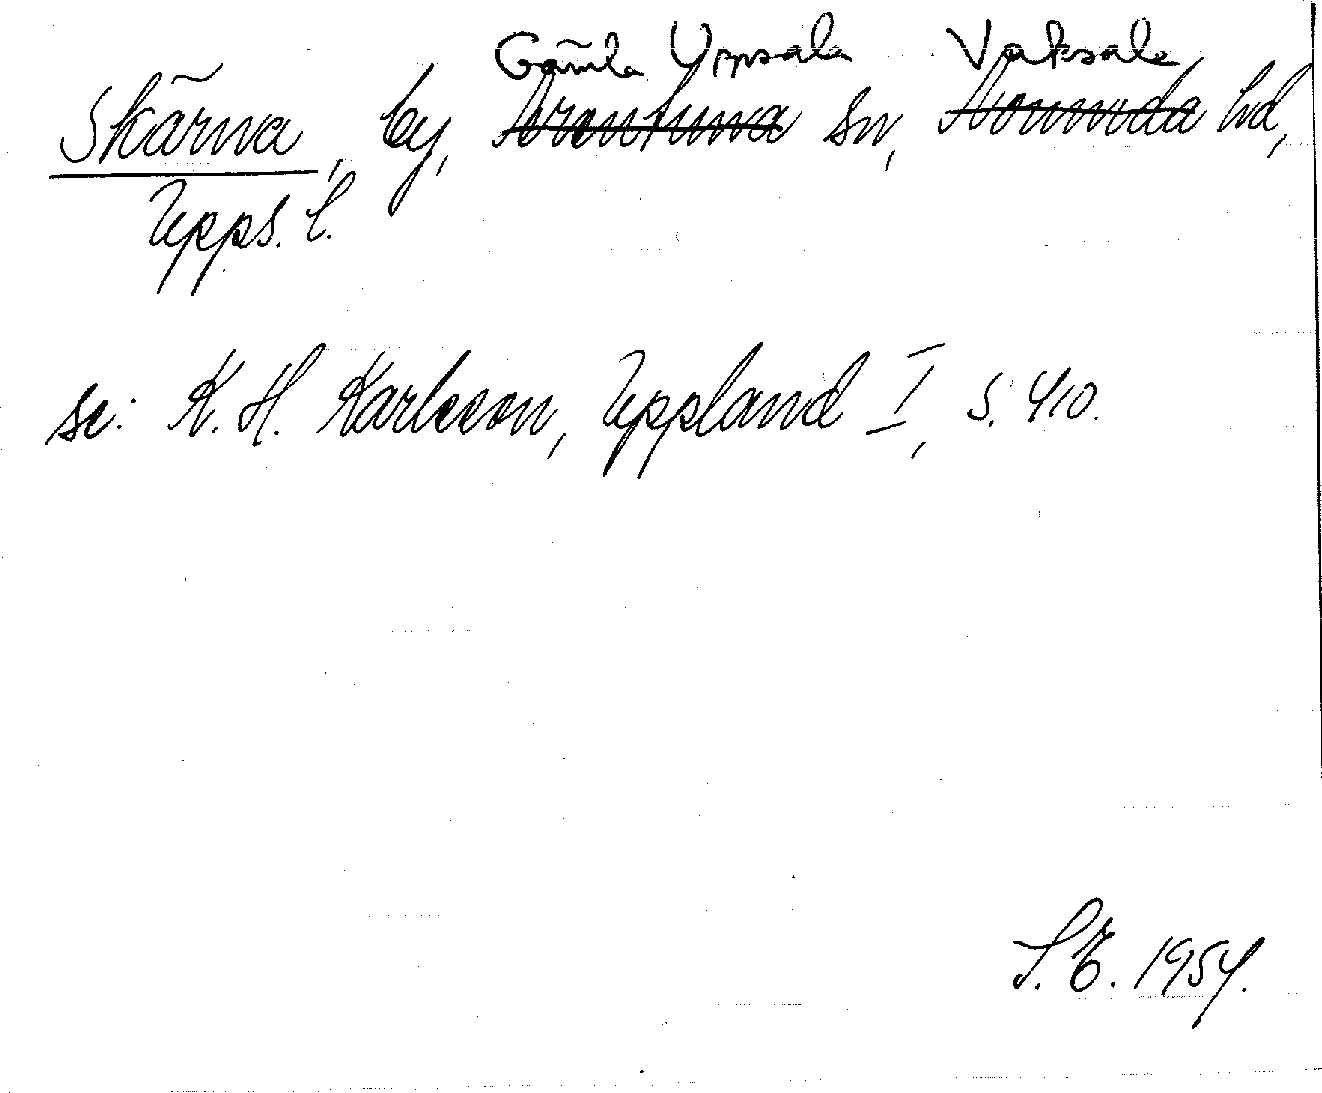 Gamla Uppsala Vaksala
Skärna, by, Ärentuna sn, Norunda hd,
Upps. l.
se: K. H. Karlsson, Uppland I, s. 410.
S. E. 1954.